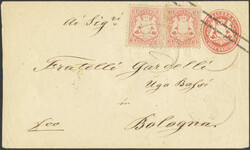 Ai Sigri
Fratelli Gardelli
Ugo Bassi
in
fco Bologna.